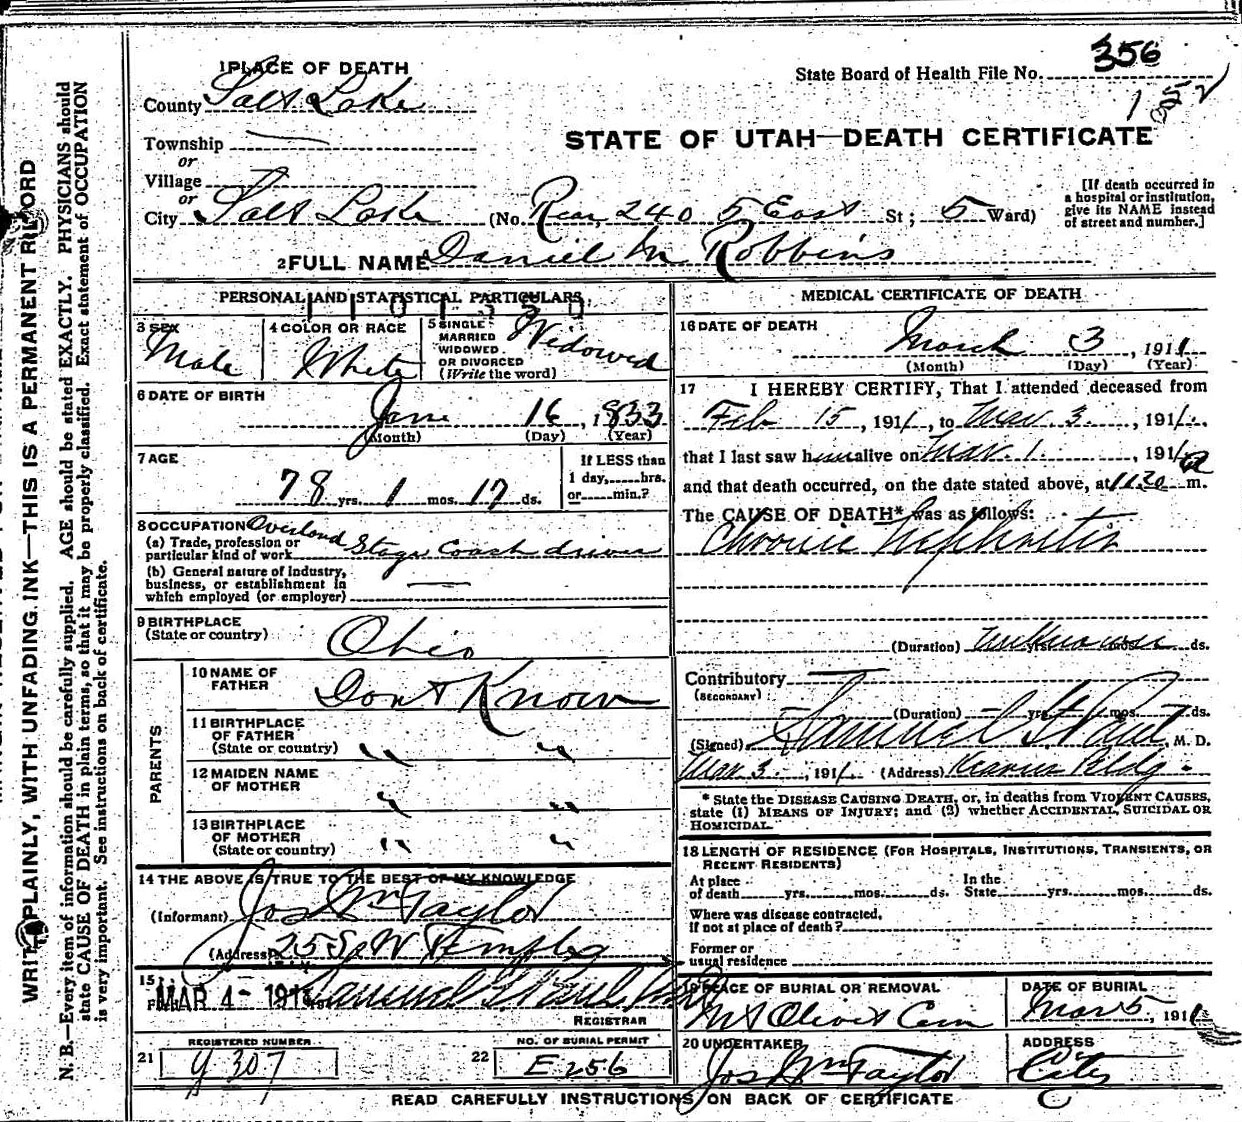 356
State Board of Health File No.
152
1 PLACE OF DEATH
County Salt Lake
STATE OF UTAH—DEATH CERTIFICATE
Township
or
Village
or
City Salt Lake (No. Rear 240 5 East St; 5 Ward)
[If death occurred in a hospital or institution, give its NAME instead of street and number.]
2 FULL NAME Daniel M Robbins
PERSONAL AND STATISTICAL PARTICULARS
3 SEX Male
4 COLOR OR RACE White
5 SINGLE MARRIED WIDOWED OR DIVORCED (Write the word) Widowed
6 DATE OF BIRTH
Jan 16, 1833
(Month) (Day) (Year)
7 AGE
78 yrs. 1 mos. 17 ds.
If LESS than 1 day, hrs. or min.?
8 OCCUPATION
(a) Trade, profession or particular kind of work Overland Stage Coach driver
(b) General nature of Industry, business, or establishment in which employed (or employer)
9 BIRTHPLACE
(State or country) Ohio
PARENTS
10 NAME OF FATHER Dont Know
11 BIRTHPLACE OF FATHER (State or country) " "
12 MAIDEN NAME OF MOTHER " "
13 BIRTHPLACE OF MOTHER (State or country) " "
14 THE ABOVE IS TRUE TO THE BEST OF MY KNOWLEDGE
(Informant) Jos Wm Taylor
(Address) 25 So W Temple
15 MAR 4- 1911
REGISTRAR
REGISTERED NUMBER
21 307
NO. OF BURIAL PERMIT
22 E256
MEDICAL CERTIFICATE OF DEATH
16 DATE OF DEATH
March 3, 1911
(Month) (Day) (Year)
17 I HEREBY CERTIFY, That I attended deceased from
Feb 15, 1911, to Mar 3, 1911,
that I last saw him alive on Mar. 1, 1911
and that death occurred, on the date stated above, at 11.30 m.
The CAUSE OF DEATH* was as follows:
Chronic Nephritis
(Duration) Unknown yrs. mos. ds.
Contributory
(SECONDARY)
(Duration) yrs. mos. ds.
(Signed) Samuel G Paul, M. D.
Mar 3, 1911. (Address) Kearns Bldg.
* State the DISEASE CAUSING DEATH, or, in deaths from VIOLENT CAUSES, state (1) MEANS OF INJURY; and (2) whether ACCIDENTAL, SUICIDAL OR HOMICIDAL.
18 LENGTH OF RESIDENCE (FOR HOSPITALS, INSTITUTIONS, TRANSIENTS, OR RECENT RESIDENTS)
At place of death yrs. mos. ds. In the State yrs. mos. ds.
Where was disease contracted, if not at place of death?
Former or usual residence
19 PLACE OF BURIAL OR REMOVAL
Mt Olivet Cem
DATE OF BURIAL
Mar 5, 1911
20 UNDERTAKER
Jos Wm Taylor
ADDRESS
City
READ CAREFULLY INSTRUCTIONS ON BACK OF CERTIFICATE
WRITE PLAINLY, WITH UNFADING INK—THIS IS A PERMANENT RECORD
N. B.—Every item of information should be carefully supplied. AGE should be stated EXACTLY. PHYSICIANS should
state CAUSE OF DEATH in plain terms, so that it may be properly classified. Exact statement of OCCUPATION
is very important. See instructions on back of certificate.